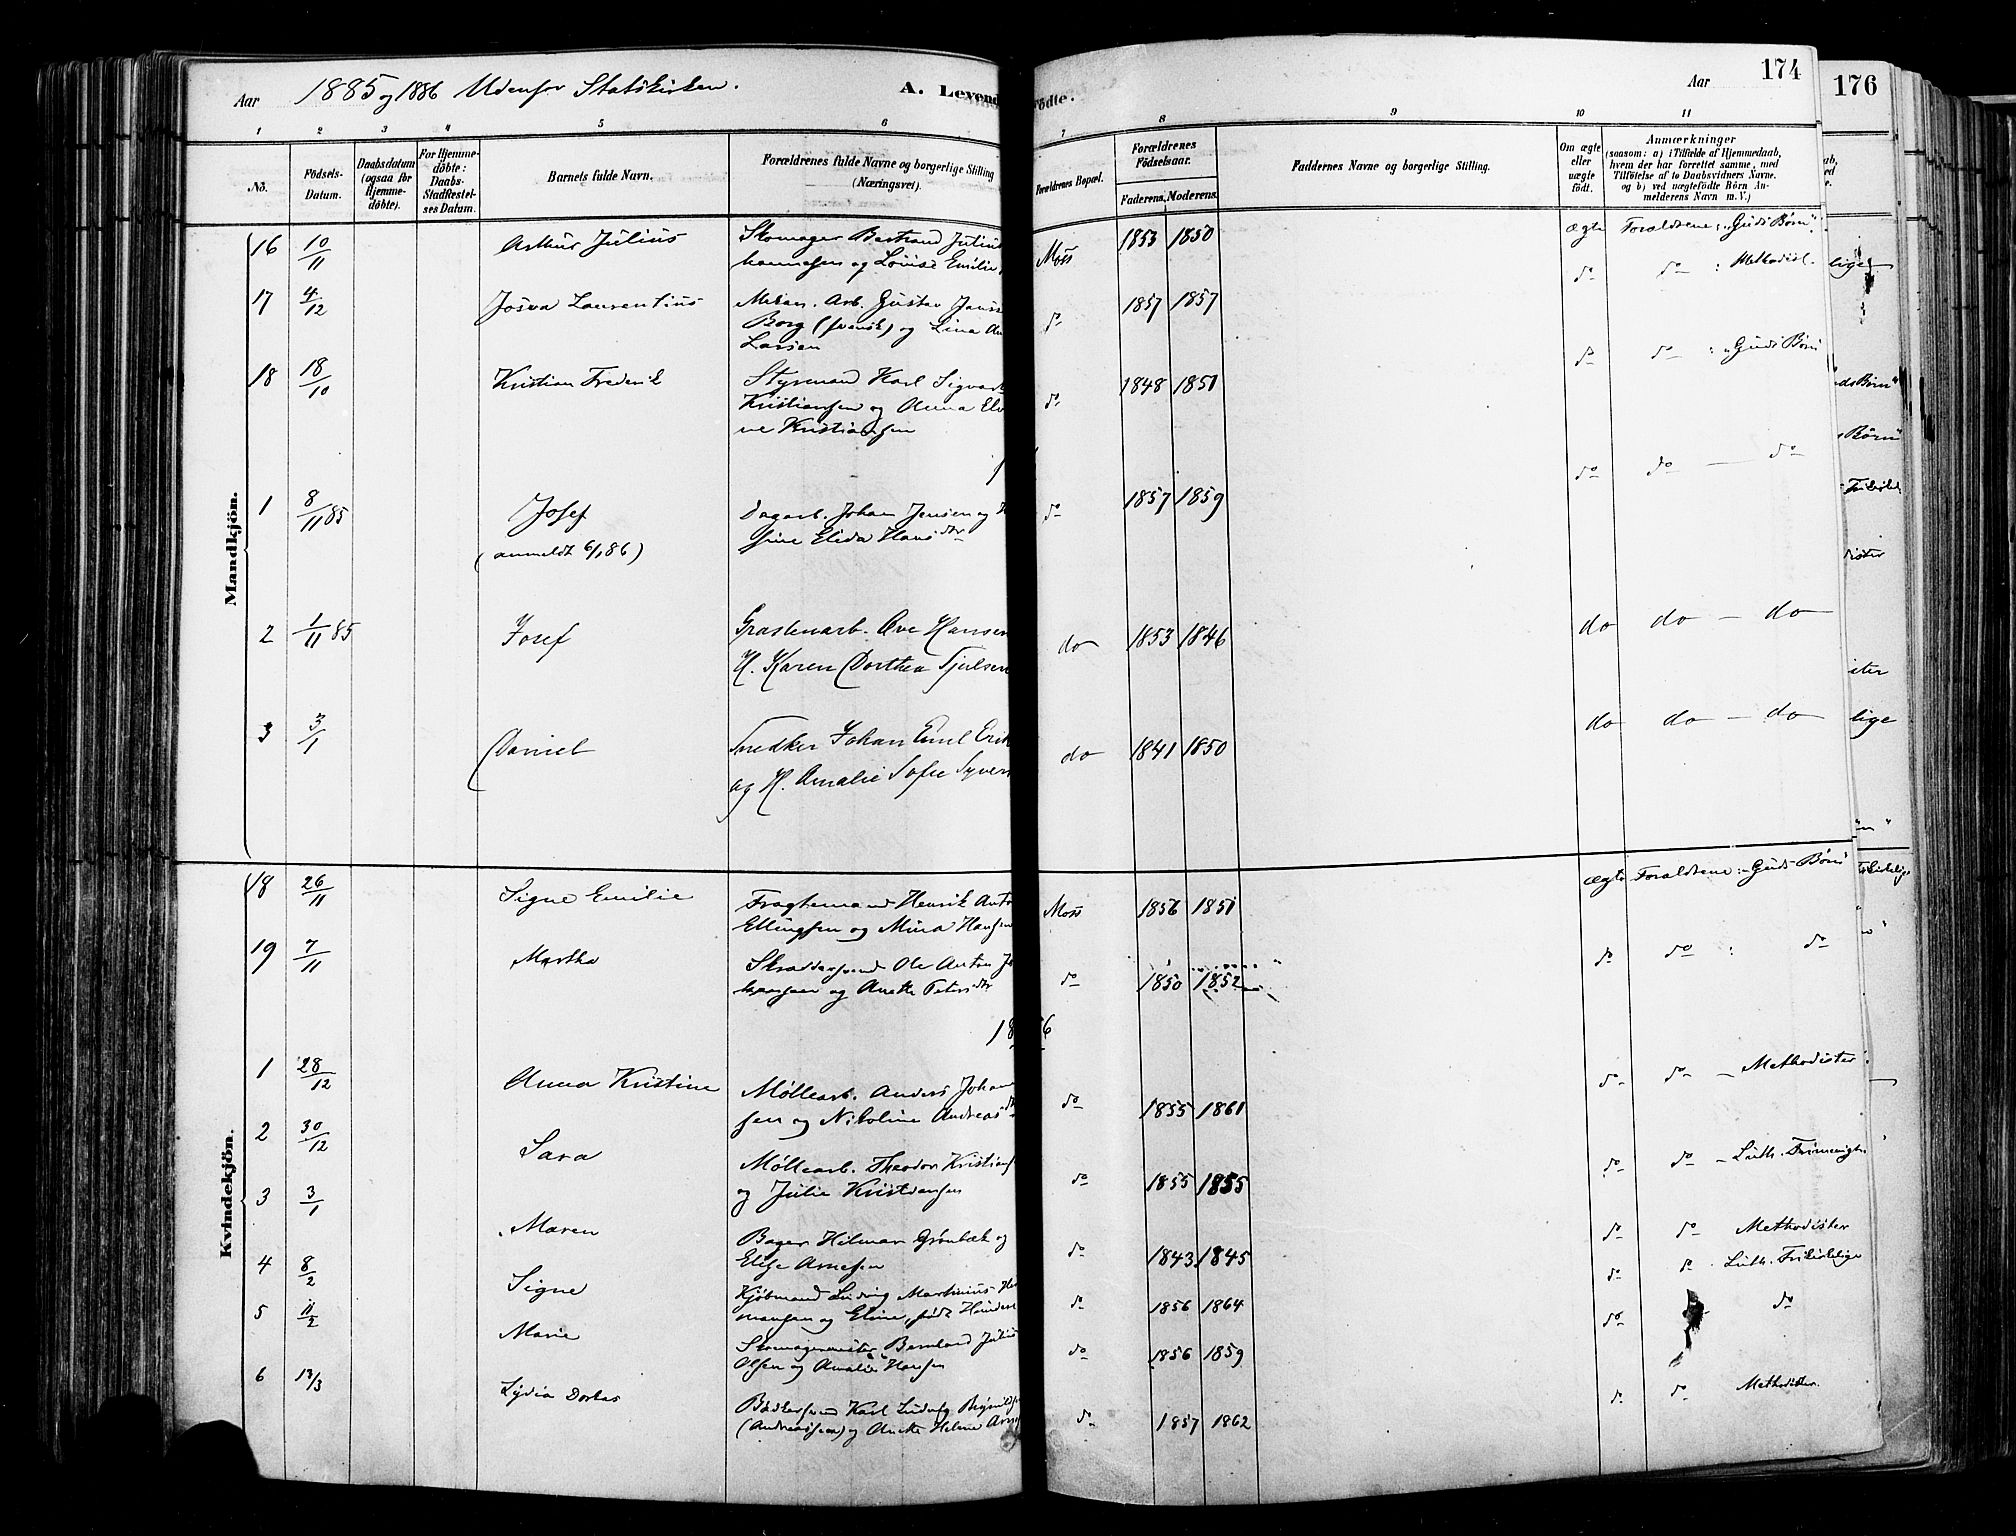 Aar 1885 og 1886 Udenfor Statskirken.
A. Levend
1 2 3 4 5 6
No.
Födsels-Datum.
Daabsdatum (ogsaa for Hjemme-döbte).
For Hjemme-döbte: Daabs-Stadfæstel-ses Datum.
Barnets fulde Navn.
Forældrenes fulde Navne og borgerlige Stilling (Næringsvei).
Mandkjön.
16 10/11 Arthur Julius Skomager Bertrand Julius
og Lovise Emilie
17 4/12 Josva Laurentius Mekan. Arb. Gustav
Borg (svensk) og Lina
Larsen
18 18/10 Kristian Frederik Styrmand Karl Sigvart
Kristiansen og Anna
ne Kristiansen
1 8/11 85 Josef Dagarb. Johan Jensen og
(anmeldt 6/1 86) sine Elida Hansdtr
2 1/11 85 Josef Ove Hansen
H. Karen Dorthea
3 3/1 Daniel Snedker Johan Emil
og H. Amalie Sofie
Kvindekjön.
18 26/11 Signe Emilie Fragtemand Henrik
Ellingsen og Mina Hansen
19 7/11 Martha Ole Anton
og Anette Petersdtr
1886
1 28/12 Anna Kristine Møllearb. Anders Johan
sen og Nikoline Andreasdtr
2 30/12 Sara Møllearb. Theodor Kristians
og Julie Kristiansen
3 3/1 Maren Bager Hilmar Grønbæk og
Elise Arnesen
4 8/2 Signe Kjøbmand Ludvig Martinius
og Eline, født
5 11/2 Marie Skomagermester Bernhard Julius
Olsen og Amalie Hansen
6 13/3 Lydia Dorkas Karl Ludvig
(Andreassen) og Anette Heline
174
Aar
ödte.
7 8 9 10 11
Forældrenes Bopæl.
Forældrenes Födselsaar.
Faderens. Moderens.
Faddernes Navne og borgerlige Stilling.
Om ægte eller uægte födt.
Anmærkninger
(saasom: a) i Tilfælde af Hjemmedaab,
hvem der har forrettet samme, med
Tilföielse af to Daabsvidners Navne.
og b) ved uægtefödte Börn An-
melderens Navn m. V.)
Moss 1853 1850 ægte Forældrene: "Guds Børn".
do 1857 1857 do do : Methodist.
do 1848 1851 do do : "Guds Børn
do 1857 1859 do do — do
do 1853 1846 do do — do
do 1841 1850 do do — do
Moss 1856 1851 ægte Forældrene: Guds Børn
do 1850 1852 do do : do
do 1855 1861 do do — Methodister
do 1855 1855 do do — Luth.
do 1843 1845 do do Methodister
do 1856 1864 do do Luth. Frikirkelige
do 1856 1859 do do
do 1857 1862 do do Methodister.
176